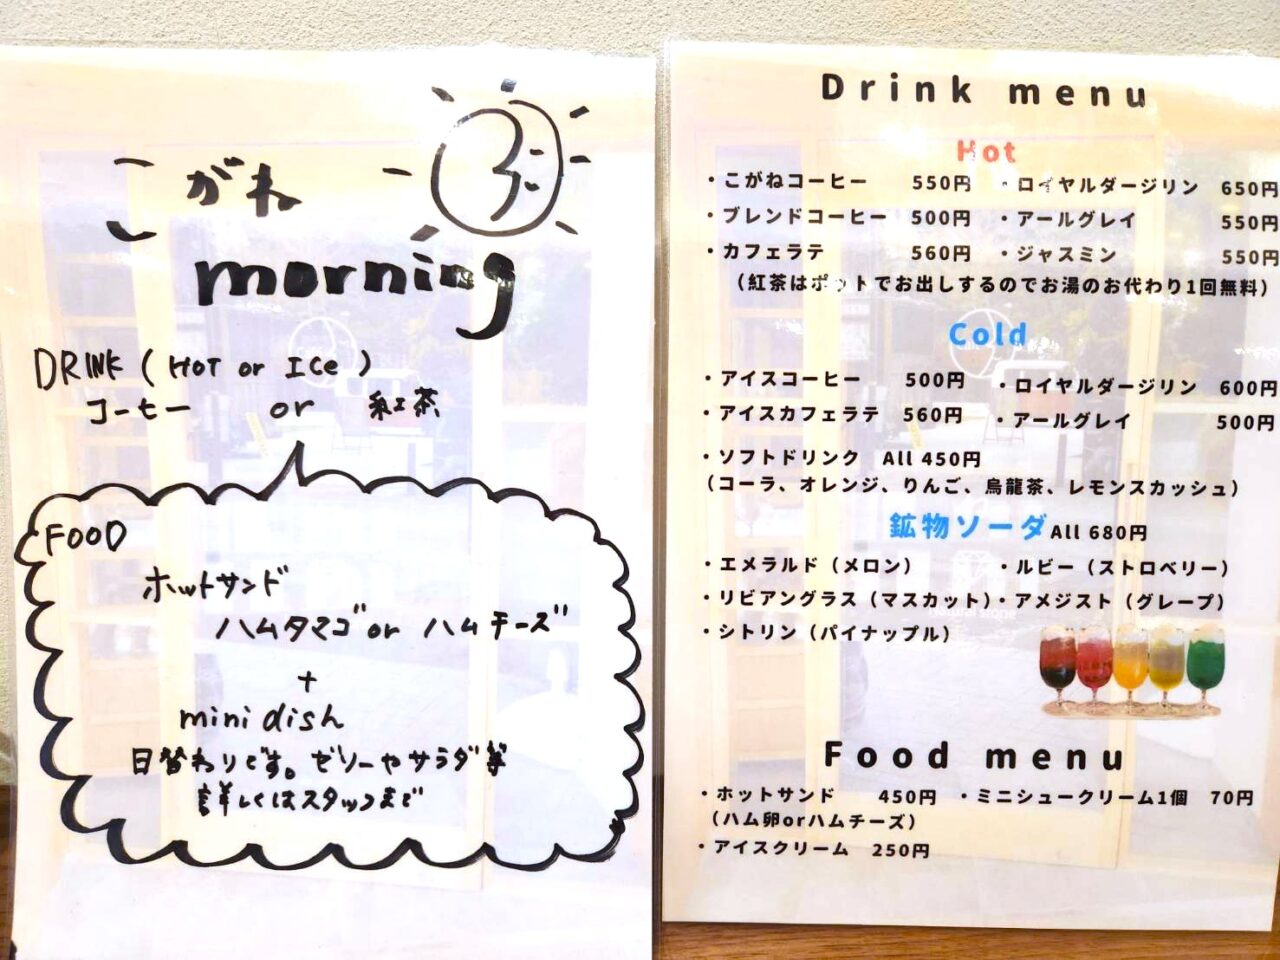 こがね
morning
DRINK ( HOT or ICe )
コーヒー or 紅茶
FOOD
ホットサンド
ハムタマゴ or ハムチーズ
+
mini dish
日替わりです。ゼリーやサラダ等
詳しくはスタッフまで
Drink menu
Hot
・こがねコーヒー 550円 ・ロイヤルダージリン 650円
・ブレンドコーヒー 500円 ・アールグレイ 550円
・カフェラテ 560円 ・ジャスミン 550円
（紅茶はポットでお出しするのでお湯のお代わり1回無料）
Cold
・アイスコーヒー 500円 ・ロイヤルダージリン 600円
・アイスカフェラテ 560円 ・アールグレイ 500円
・ソフトドリンク All 450円
（コーラ、オレンジ、りんご、烏龍茶、レモンスカッシュ）
鉱物ソーダ All 680円
・エメラルド（メロン） ・ルビー（ストロベリー）
・リビアングラス（マスカット）・アメジスト（グレープ）
・シトリン（パイナップル）
Food menu
・ホットサンド 450円 ・ミニシュークリーム1個 70円
（ハム卵orハムチーズ）
・アイスクリーム 250円